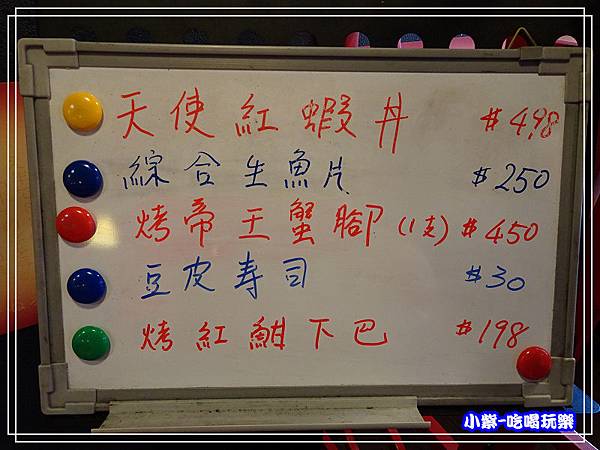 天使紅蝦丼 #498
綜合生魚片 #250
烤帝王蟹腳(1支) #450
豆皮寿司 #30
烤紅魽下巴 #198
小紫-吃喝玩樂